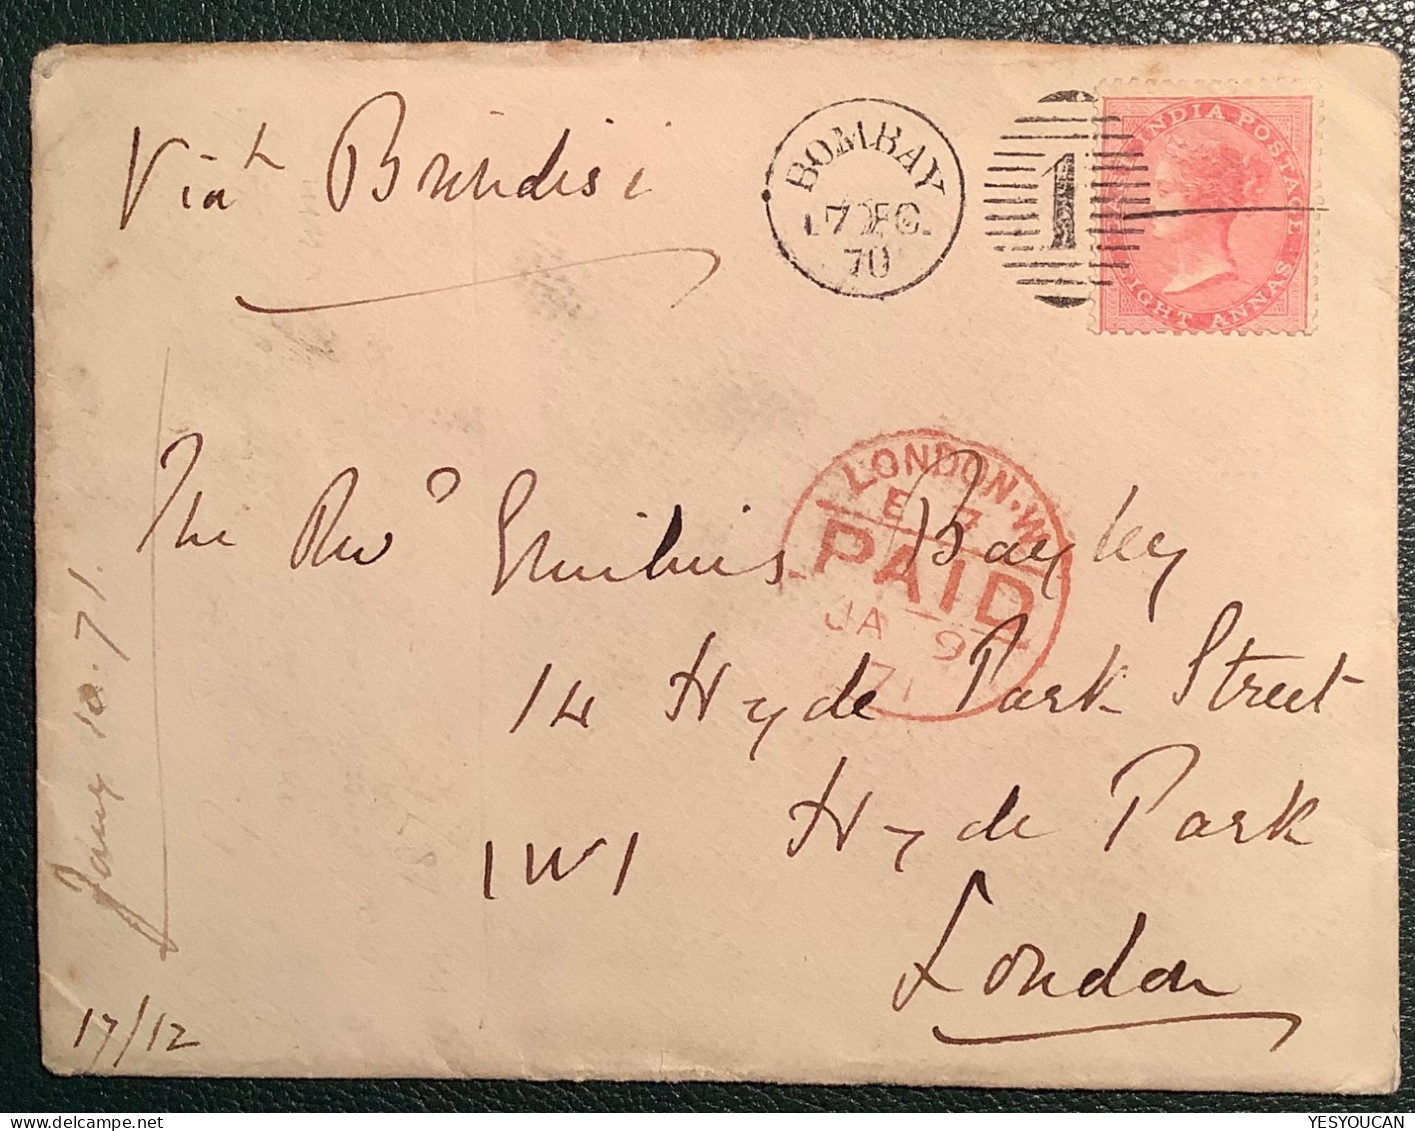 Via Brindisi
BOMBAY
17 DEC
70
1
INDIA POSTAGE
EIGHT ANNAS
LONDON · W
E 7
PAID
JA 9
71
The Revd Bayley
14 Hyde Park Street
Hyde Park
London
1W1
Jany 10. 71.
17/12
YESYOUCAN